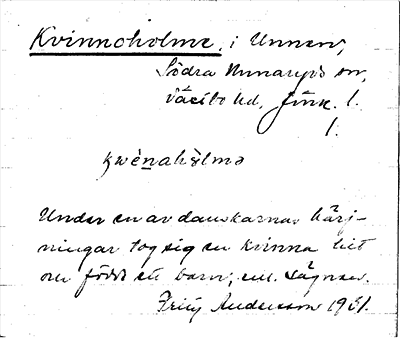 Kvinnoholme, i Unnen,
Södra Unnaryds sn,
Västbo hd, Jönk. l.
1.
kwènahòlmə
Under en av danskarnas härj-
ningar tog sig en kvinna hit
och födde ett barn, enl. sägnen.
Fritz Andersson 1931.